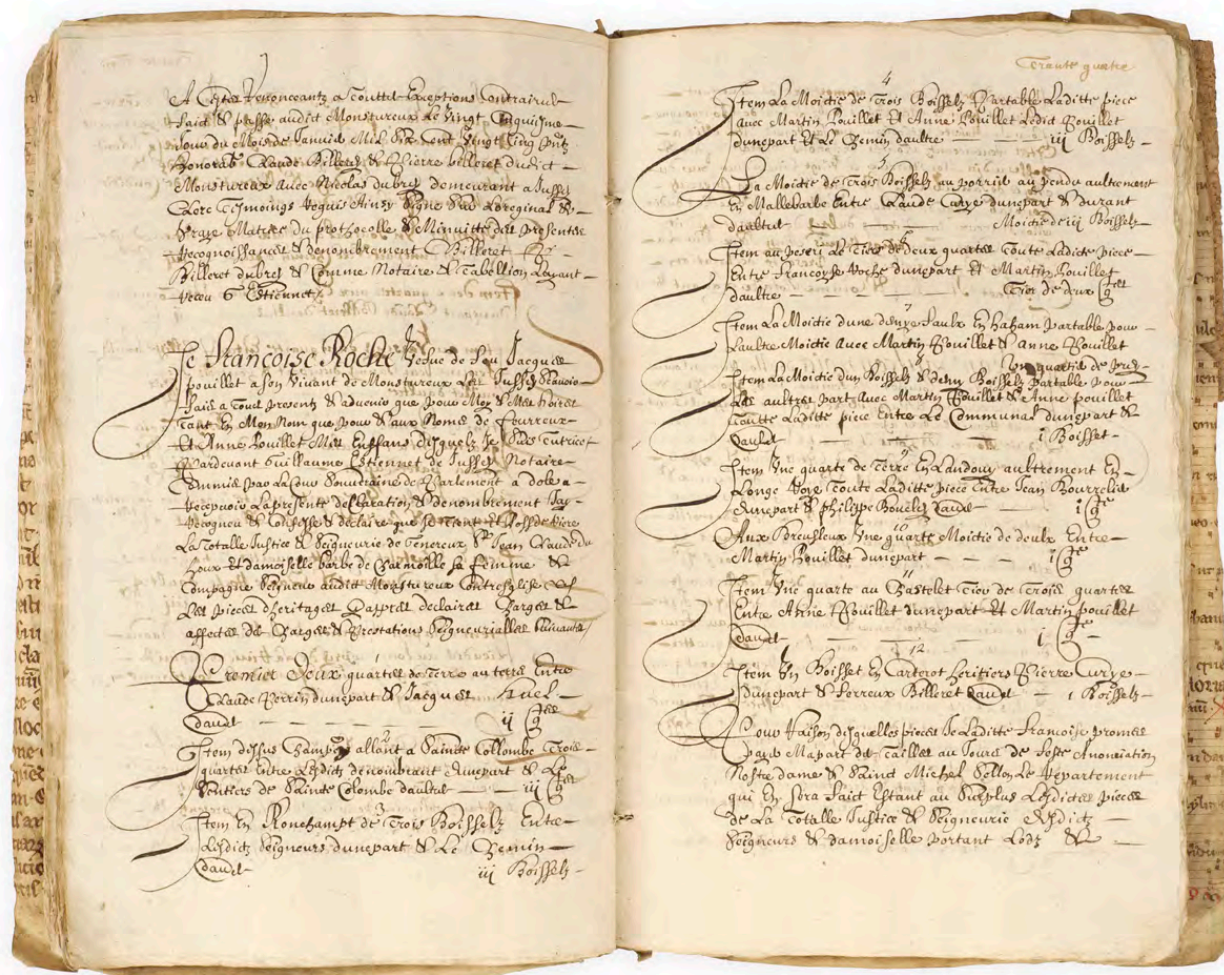 A Cestes Renonceantz a toutte Exceptions Contraires
faict & passe audict Monstureux Le Vingt Cinquiesme
Jour du Mois de Janvier Mil Six Cent Vingt Cinq
honorab Claude Billeret & Pierre billeret dudict
Monstureux avec Nicolas dubrey demeurant a Jussey
Clerc Tesmoings requis Ainsy Signe Sur Loreginal &
vraye Matrice du prothocolle & Minuitte des presentes
recognoissances & denombrement Billeret
Billeret dubrey & Comme Notaire & Tabellion Layant
receu G Estiennet
Je Françoise Roche Vefue de feu Jacques
pouillet a Son Vivant de Monstureux Les Jussey Scavoir
fais a Tous presentz & advenir que pour Moy & Mes hoires
Tant En Mon Nom que pour & aux Noms de fourreux
Et Anne Pouillet Mes Enffans desquelz Je Suis tutrice
Pardevant Guillaume Estiennet de Jussey Notaire
Commis par La Cour Souveraine de Parlement a dole a
recepvoir La presente declaration & denombrement Jay
recogneu & Confesse & declaire que Je Tient Et Possde
La Totalle Justice & Seigneurie de Sr Jean Claude du
houx Et damoiselle barbe de Charmoille sa femme &
Compagne Seigneur audict Monstureux Contreglise &
Les pieces dheritages Cappres declaires Charges &
affectes des Charges & Prestations Seigneurialles Suivantes
1
Premier Deux quartes de Terre au terra Entre
Claude Perrin dunepart & Jacques huel
daul ij qtes
2
Item dessus Champ allant a Saincte Collombe Trois
quartes Entre Lesdictz denombrant dunepart & Le
Sentiers de Sainte Colombe daultre iij qtes
3
Item En Ronchampt de Trois Boisselz Entre
Lesdictz Seigneurs dunepart & Le Chemin
daul iij Boisselz
Trante quatre
4
Item La Moictie de Trois Boisselz Partable Laditte piece
avec Martin Pouillet Et Anne Pouillet Ledict Pouillet
dunepart Et Le Chemin daultre iij Boisselz
5
La Moictie de Trois Boisselz au porrib au pendu aultrement
En Mallebarbe Entre Claude Curye dunepart & durant
daultre Moictie de iij Boisselz
6
Item au Le Tiers de deux quartes Toute Ladicte piece
Entre Francoyse Roche dunepart Et Martin Pouillet
daultre Tier de deux qtes
7
Item La Moictie dune demye Faulx En haham partable pour
Laultre Moictie avec Martin Pouillet & Anne Pouillet
Un quartie de prey
8
Item La Moictie dun Boisselz & demy Boisselz Partable pour
Les aultres part avec Martin Pouillet & Anne pouillet
Toutte Laditte piece Entre Le Communal dunepart &
daulst i Boisset
9
Item Une quarte de Terre En Landouy aultrement En
Longe Voye Toute Laditte piece Entre Jean Bourrelie
dunepart & philippe Bouclez daul i qte
10
Aux Breusleux Une quarte Moictie de deulx Entre
Martin Pouillet dunepart i qte
11
Item Une quarte au Chastelet Tier de Trois quartes
Entre Anne Pouillet dunepart Et Martin pouillet
daul i qte
12
Item Un Boisset En Carterot heritiers Pierre Curye
dunepart & Ferreux Billeret daul i Boisselz
Pour Raison desquelles pieces Je Laditte francoise promes
payé Mapart des Tailles au Jours de feste Anonciation
Nostre dame & Sainct Michel Sellon Le departement
qui En sera faict Estant au Surplus Lesdictes pieces
de La Totalle Justice & Seigneurie desdictz
Seigneurs & damoiselle portant Lodz &